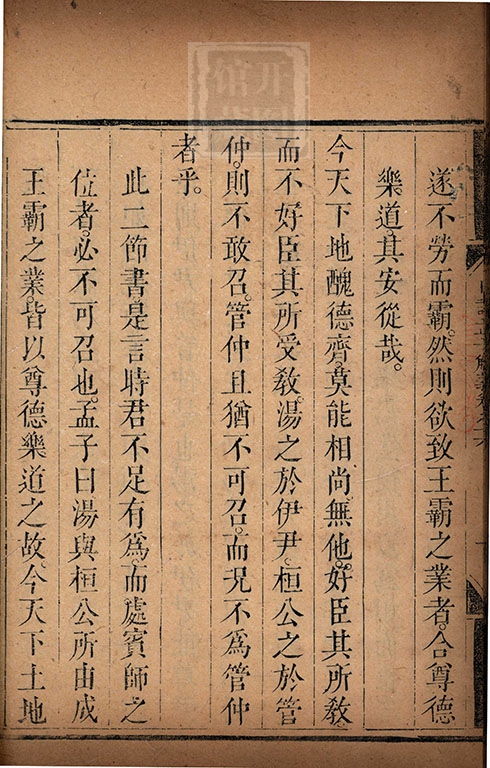 遂不勞而霸。然則欲致王霸之業者。合尊德
樂道。其安從哉。
今天下地醜德齊。莫能相尚。無他。好臣其所教。
而不好臣其所受教。湯之於伊尹。桓公之於管
仲。則不敢召。管仲且猶不可召。而況不爲管仲
者乎。
此二節書。是言時君不足有爲。而處賓師之
位者。必不可召也。孟子曰湯與桓公所由成
王霸之業。皆以尊德樂道之故。今天下土地